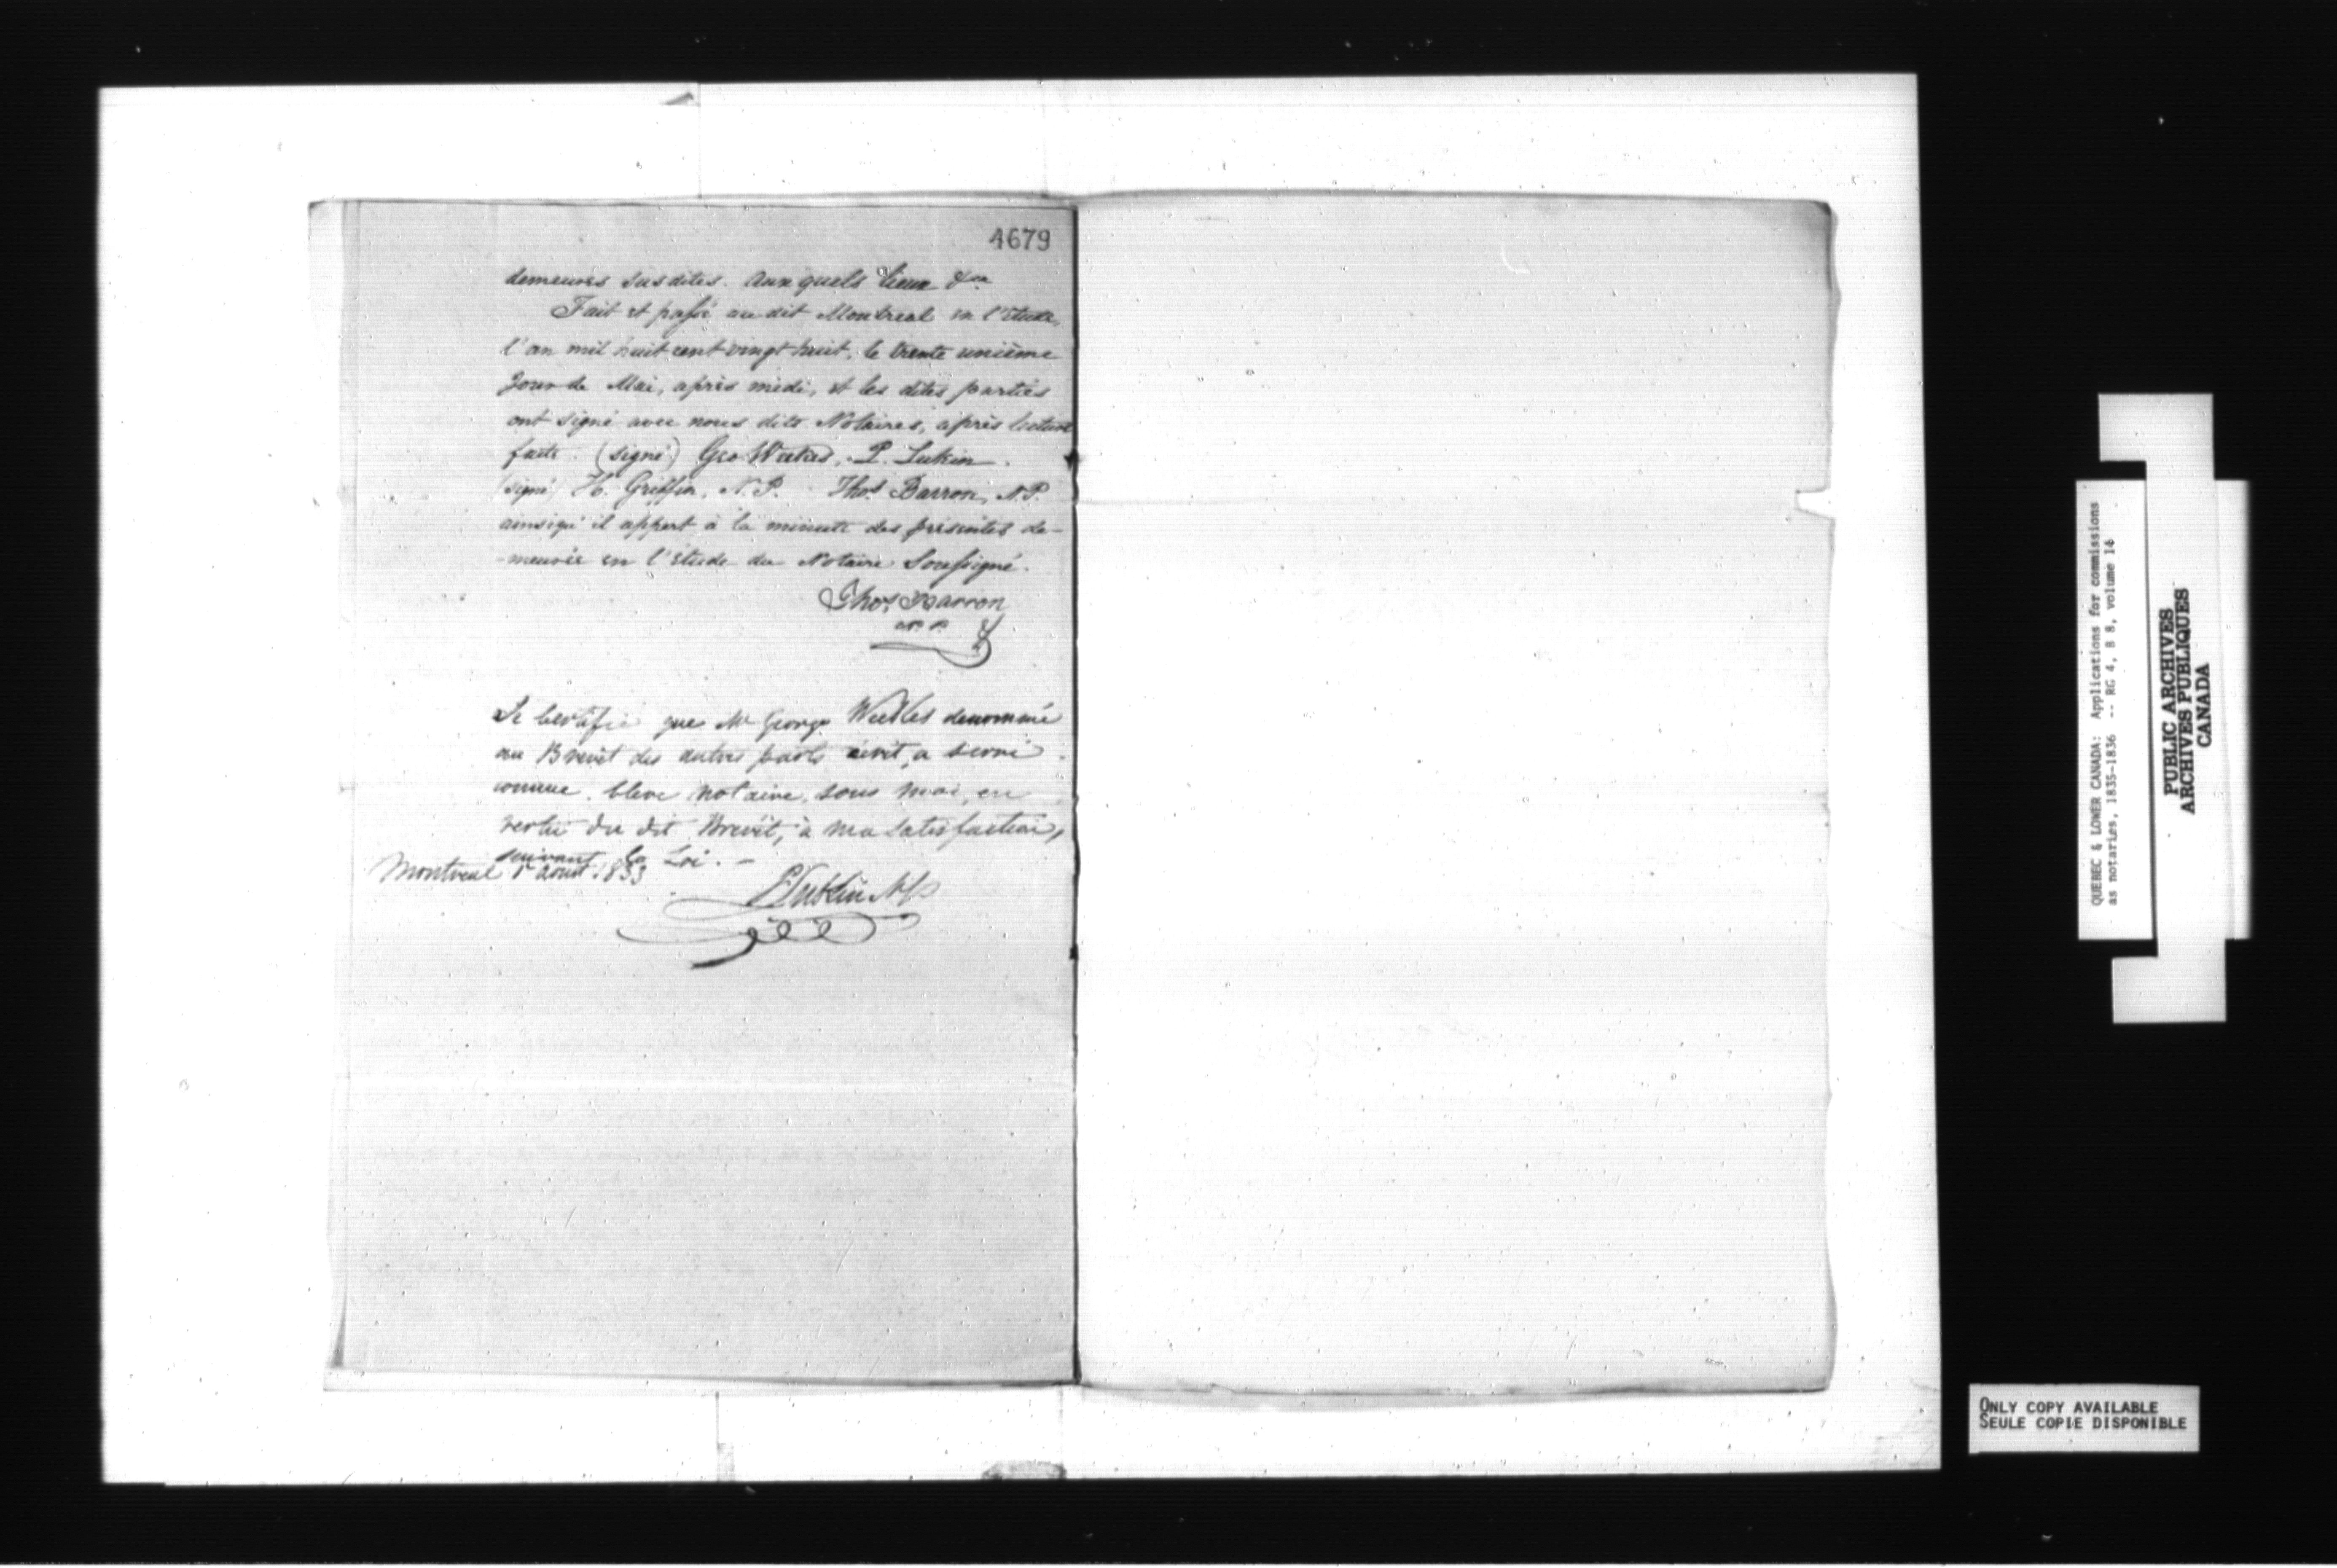 4679
demeures susdites. Auxquels lieux &ca
Fait et passé au dit Montreal en l'Etude,
l'an mil huit cent vingt huit, le trente unième
Jour de Mai, après midi, et les dites parties
ont signé avec nous dits Notaires, après lecture
faite. (signé) Geo Weekes, P. Lukin.
(signé) H. Griffin, N.P. Thos. Barron, N.P.
ainsiqu'il appert à la minute des présentes de-
-meurée en l'Etude du Notaire Soussigné.
Thos. Barron
N.P.
Je Certifie que Mr George Weekes denommé
au Brevêt des autres parts écrit, a servi
comme Clerc notaire, sous moi, en
vertu du dit Brevêt, à ma satisfaction,
suivant la Loi. -
Montreal 1r Aout 1833
P Lukin NP
QUEBEC & LOWER CANADA: Applications for commissions
as notaries, 1835-1836 -- RG 4, B 8, volume 16
PUBLIC ARCHIVES
ARCHIVES PUBLIQUES
CANADA
ONLY COPY AVAILABLE
SEULE COPIE DISPONIBLE